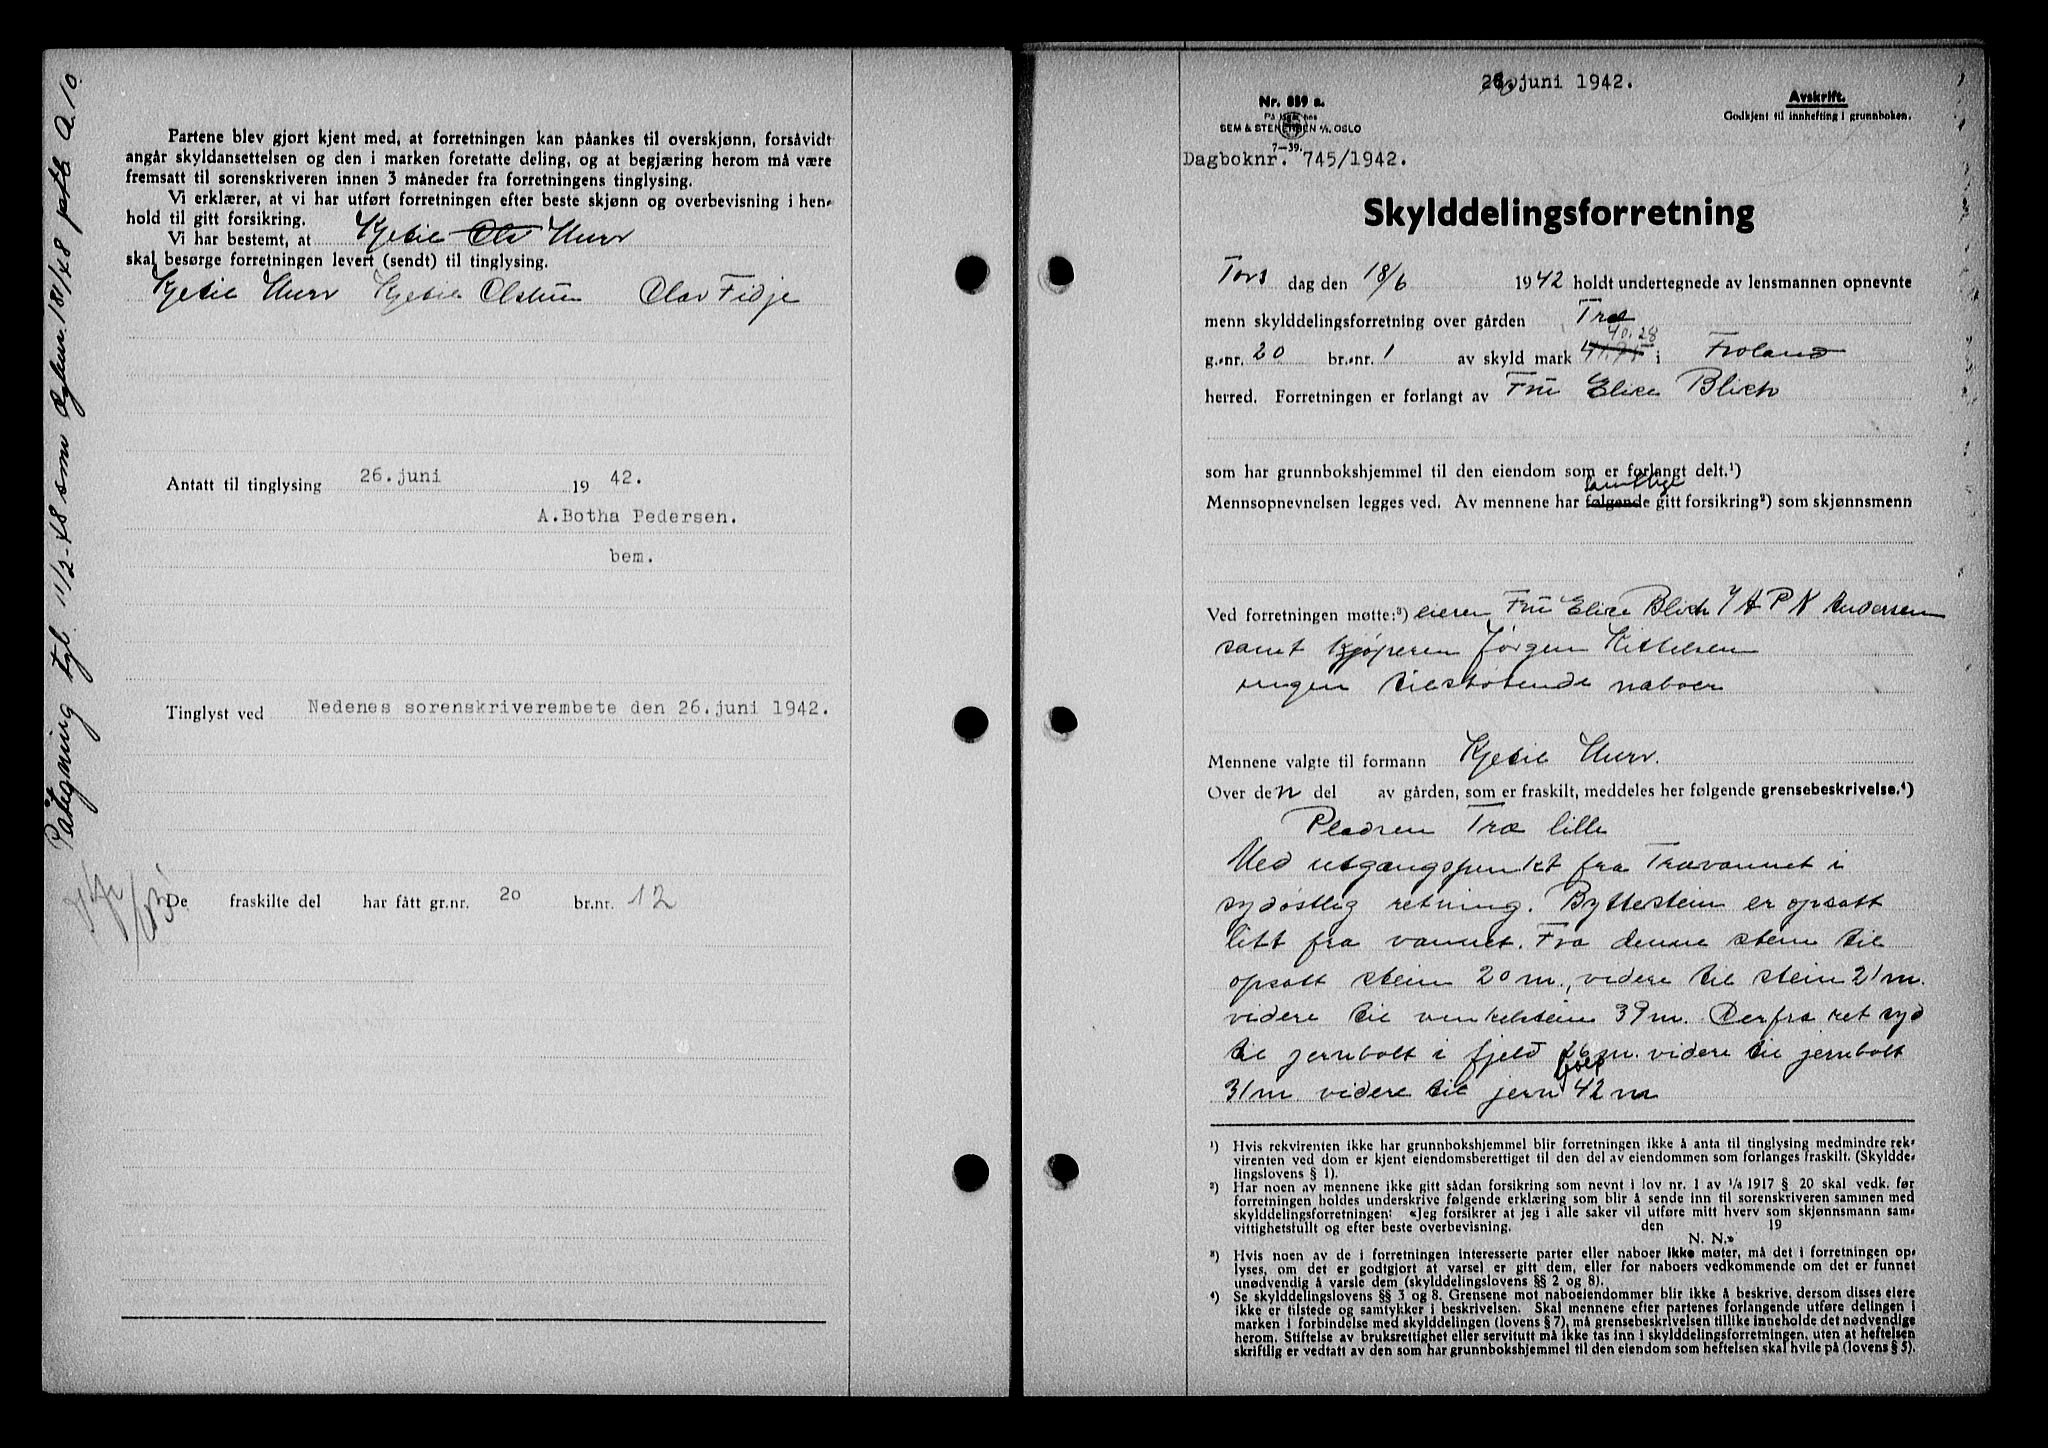 Partene blev gjort kjent med, at forretningen kan påankes til overskjønn, forsåvidt
angår skyldansettelsen og den i marken foretatte deling, og at begjæring herom må være
fremsatt til sorenskriveren innen 3 måneder fra forretningens tinglysing.
Vi erklærer, at vi har utført forretningen efter beste skjønn og overbevisning i hen-
hold til gitt forsikring.
Vi har bestemt, at Kjetil Ols Hurv
skal besørge forretningen levert (sendt) til tinglysing.
Kjetil Hurv Kjetil Olstun Olav Fidje
Antatt til tinglysing 26.juni 19 42.
A.Botha Pedersen.
bem.
Tinglyst ved Nedenes sorenskriverembete den 26.juni 1942.
De fraskilte del har fått gr.nr. 20 br.nr. 12
Påtegning tgl. 11/2-48 som dagbnr. 181/48 A.10.
26 juni 1942.
Nr. 889 a.
På lager hos
SEM & STENERSEN A/S, OSLO
7—39.
Avskrift.
Godkjent til innhefting i grunnboken.
Dagboknr. 745/1942.
Skylddelingsforretning
Tors dag den 18/6 1942 holdt undertegnede av lensmannen opnevnte
menn skylddelingsforretning over gården Træ
40.28
g.-nr. 20 br.-nr. 1 av skyld mark i Froland
herred. Forretningen er forlangt av Fru Elise Blich
som har grunnbokshjemmel til den eiendom som er forlangt delt.¹)
samtlige
Mennsopnevnelsen legges ved. Av mennene har følgende gitt forsikring²) som skjønnsmenn
Ved forretningen møtte:³) eieren Fru Elise Blich v/ A P N Andersen
samt kjøperen Jørgen Kittelsen
ingen tilstøtende naboer
Mennene valgte til formann Kjetil Hurv.
Over den del av gården, som er fraskilt, meddeles her følgende grensebeskrivelse.⁴)
Pladsen Træ lille
Med utgangspunkt fra Trævannet i
sydøstlig retning. Byttestein er opsatt
litt fra vannet. Fra denne stein til
opsatt stein 20 m., videre til stein 21 m.
videre til vinkelstein 39 m. Derfra ret syd
til jernbolt i fjeld 26 m. videre til jernbolt
31 m. videre til jern bolt 42 m
¹) Hvis rekvirenten ikke har grunnbokshjemmel blir forretningen ikke å anta til tinglysing medmindre rek-
virenten ved dom er kjent eiendomsberettiget til den del av eiendommen som forlanges fraskilt. (Skyldde-
lingslovens § 1).
²) Har noen av mennene ikke gitt sådan forsikring som nevnt i lov nr. 1 av 1/6 1917 § 20 skal vedk. før
forretningen holdes underskrive følgende erklæring som blir å sende inn til sorenskriveren sammen med
skylddelingsforretningen: «Jeg forsikrer at jeg i alle saker vil utføre mitt hverv som skjønnsmann sam-
vittighetsfullt og efter beste overbevisning. den 19
N. N.»
³) Hvis noen av de i forretningen interesserte parter eller naboer ikke møter, må det i forretningen op-
lyses, om det er godtgjort at varsel er gitt dem, eller for naboers vedkommende om det er funnet
unødvendig å varsle dem (skylddelingslovens §§ 2 og 8).
⁴) Se skylddelingslovens §§ 3 og 8. Grensene mot naboeiendommer blir ikke å beskrive, dersom disses eiere
ikke er tilstede og samtykker i beskrivelsen. Skal mennene efter partenes forlangende utføre delingen i
marken i forbindelse med skylddelingen (lovens § 7), må grensebeskrivelsen tillike inneholde det nødvendige
herom. Stiftelse av bruksrettighet eller servitutt må ikke tas inn i skylddelingsforretningen, uten at heftelsen
skriftlig er vedtatt av den som har grunnbokshjemmel til den eiendom som heftelsen skal hvile på (lovens § 5).